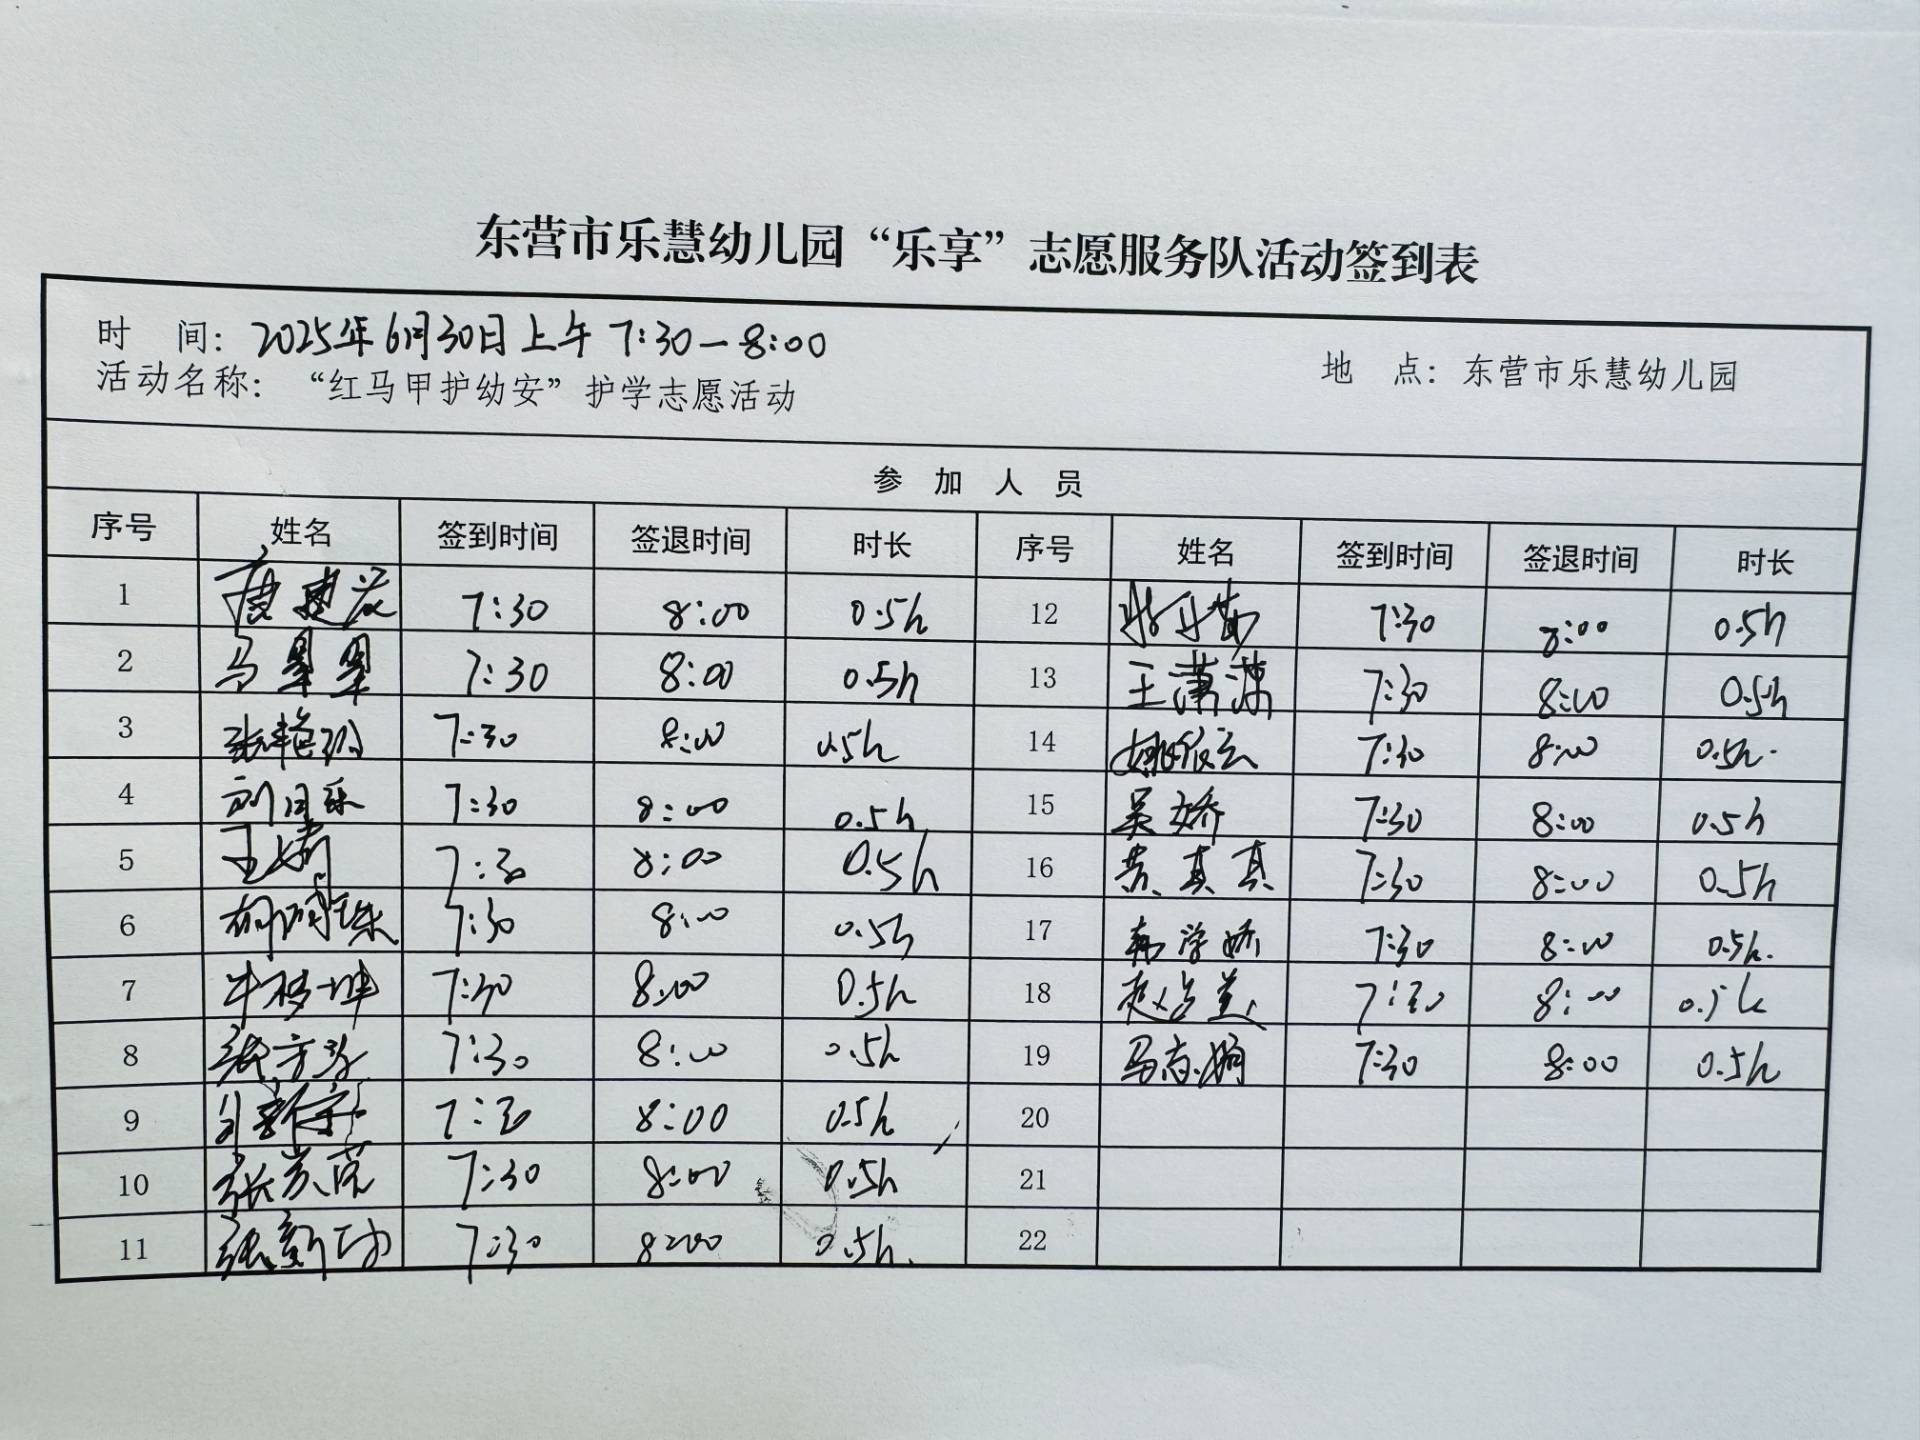 东营市乐慧幼儿园“乐享”志愿服务队活动签到表
时 间：2025年6月30日上午7:30—8:00
地 点：东营市乐慧幼儿园
活动名称：“红马甲护幼安”护学志愿活动
参 加 人 员
序号 姓名 签到时间 签退时间 时长 序号 姓名 签到时间 签退时间 时长
1 7:30 8:00 0.5h 12 7:30 8:00 0.5h
2 马星星 7:30 8:00 0.5h 13 王潇 7:30 8:00 0.5h
3 张艳 7:30 8:00 0.5h 14 姚 7:30 8:00 0.5h
4 7:30 8:00 0.5h 15 吴娇 7:30 8:00 0.5h
5 王婧 7:30 8:00 0.5h 16 黄真真 7:30 8:00 0.5h
6 7:30 8:00 0.5h 17 韩学娇 7:30 8:00 0.5h
7 牛 坤 7:30 8:00 0.5h 18 赵 7:30 8:00 0.5h
8 张方 7:30 8:00 0.5h 19 马 娟 7:30 8:00 0.5h
9 7:30 8:00 0.5h 20
10 张 7:30 8:00 0.5h 21
11 张新功 7:30 8:00 0.5h 22